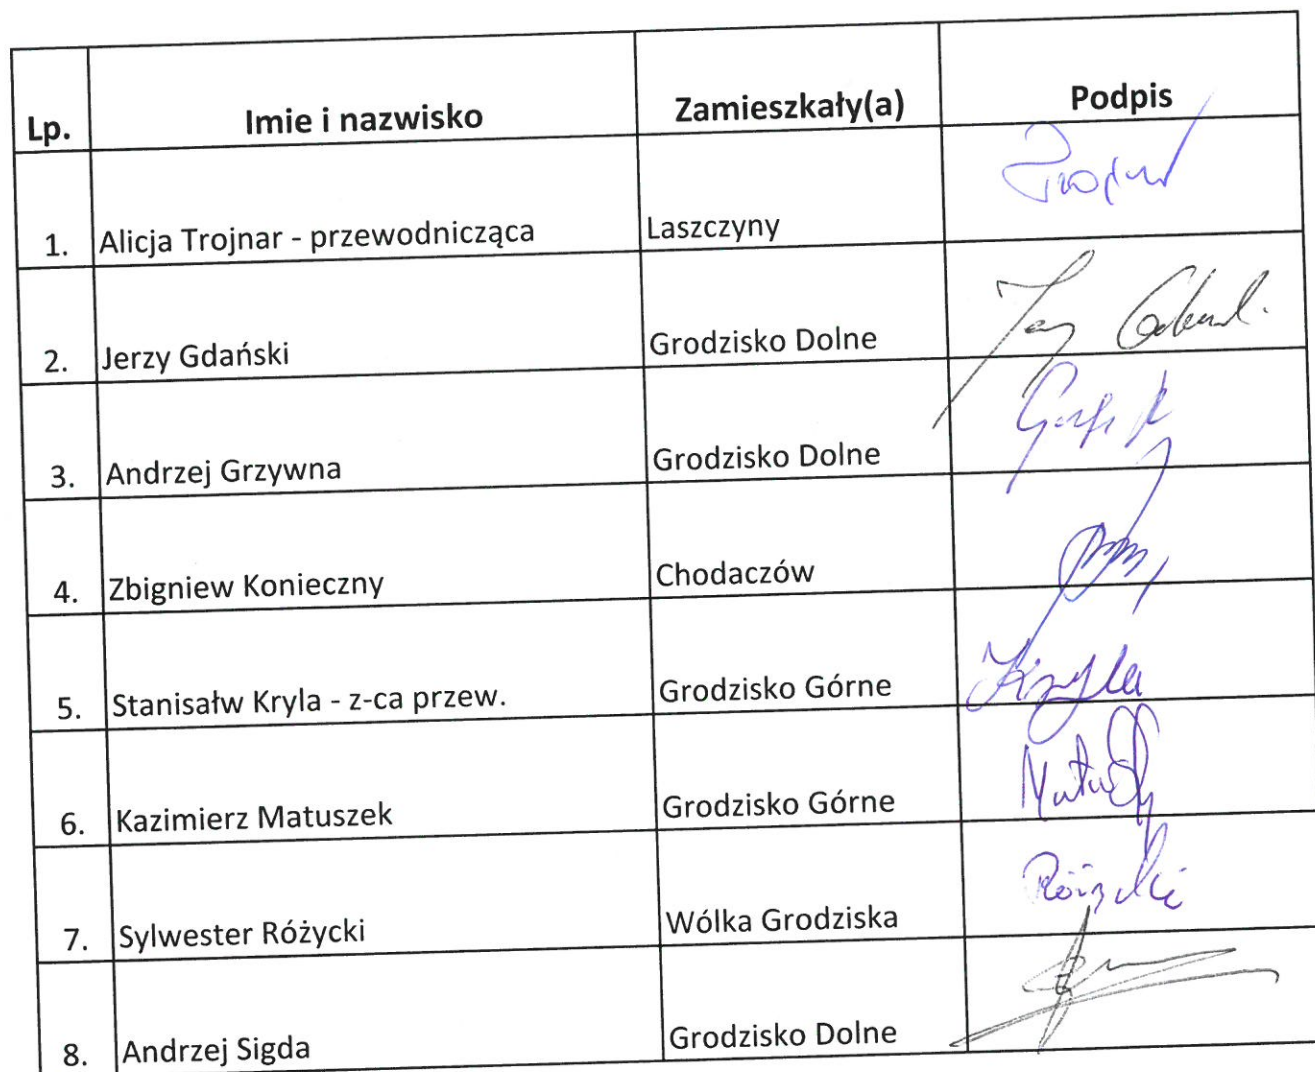 Lp. Imie i nazwisko Zamieszkały(a) Podpis
1. Alicja Trojnar - przewodnicząca Laszczyny
2. Jerzy Gdański Grodzisko Dolne
3. Andrzej Grzywna Grodzisko Dolne
4. Zbigniew Konieczny Chodaczów
5. Stanisałw Kryla - z-ca przew. Grodzisko Górne Kryla
6. Kazimierz Matuszek Grodzisko Górne
7. Sylwester Różycki Wólka Grodziska Różycki
8. Andrzej Sigda Grodzisko Dolne